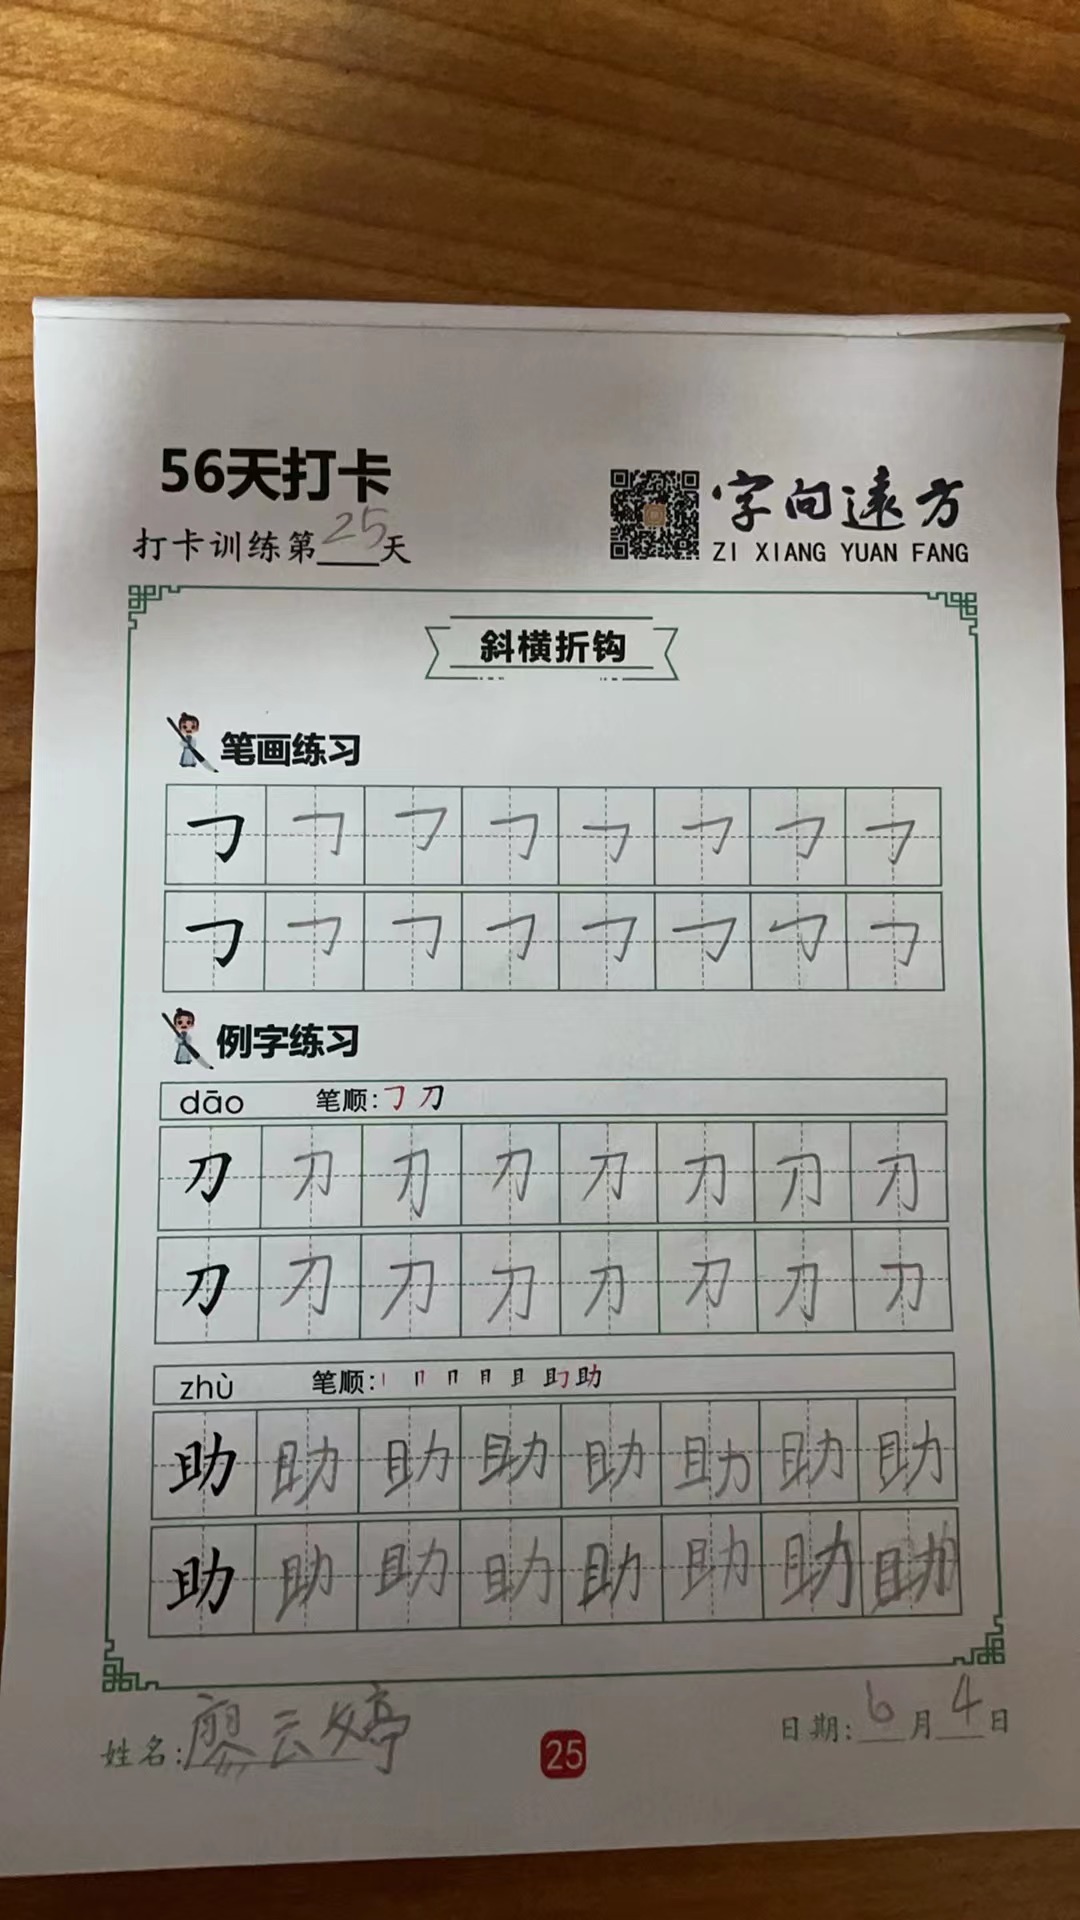 56天打卡
打卡训练第25天
字向遠方
ZI XIANG YUAN FANG
斜横折钩
笔画练习
𠃌 𠃌 𠃌 𠃌 𠃌 𠃌 𠃌 𠃌
𠃌 𠃌 𠃌 𠃌 𠃌 𠃌 𠃌 𠃌
例字练习
dāo 笔顺: 𠃌 刀
刀 刀 刀 刀 刀 刀 刀 刀
刀 刀 刀 刀 刀 刀 刀 刀
zhù 笔顺: 丨 冂 冂 月 且 助 助
助 助 助 助 助 助 助 助
助 助 助 助 助 助 助 助
姓名:廖云婷
25
日期:6月4日